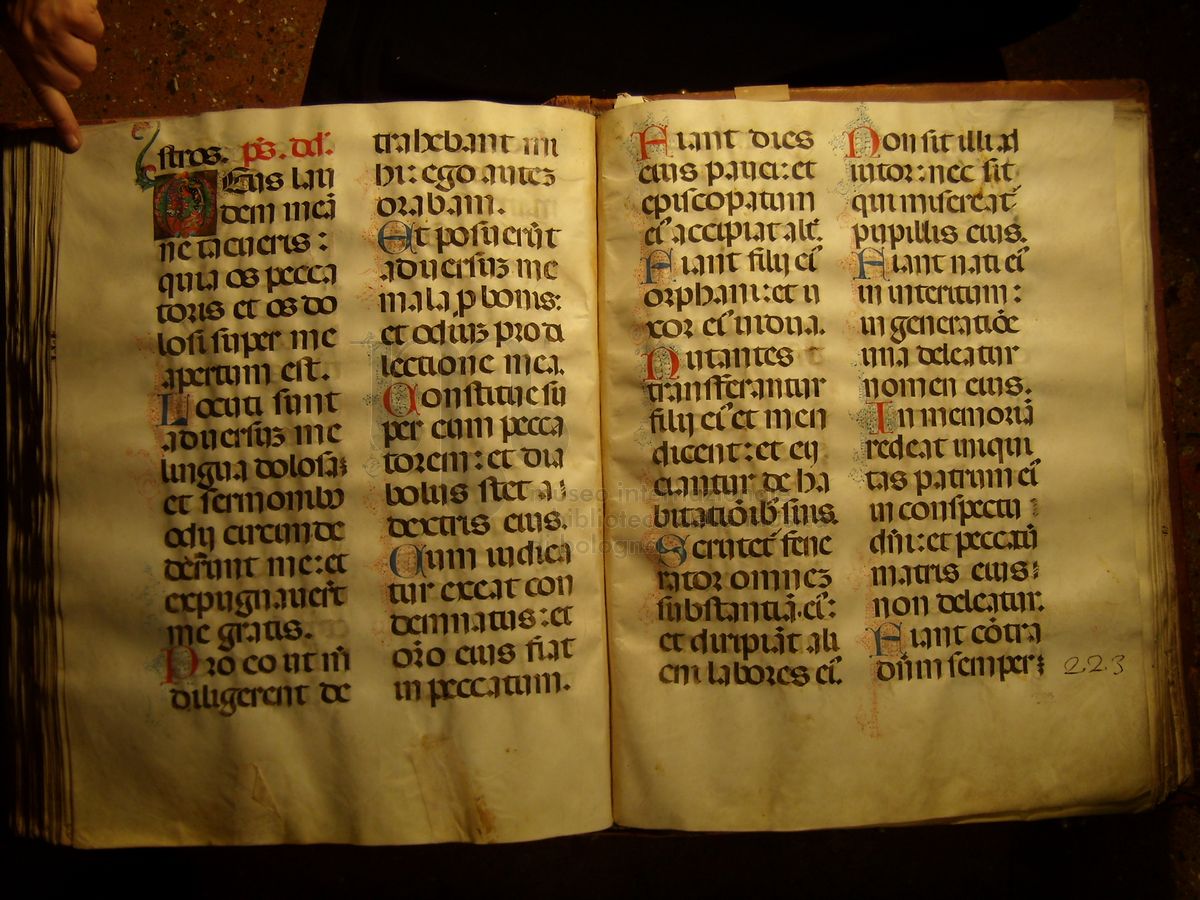 stros. ps. dd.
Deus lau
dem meā
ne tacueris :
quia os pecca
toris et os do
losi super me
apertum est.
Locuti sunt
aduersus me
lingua dolosa:
et sermonibus
odij circumde
derunt me: et
expugnauerūt
me gratis.
Pro eo ut m̄
diligerent de
trahebant mi
hi: ego autez
orabam.
Et posuerūt
aduersus me
mala p bonis:
et odiuz pro di
lectione mea.
Constitue su
per eum pecca
torem: et dia
bolus stet a
dextris eius.
Cum iudica
tur exeat con
demnatus: et
orō eius fiat
in peccatum.
Fiant dies
eius pauci: et
episcopatum
eī accipiat alt.
Fiant filij eī
orphani: et u
xor eī uidua.
Nutantes
transferantur
filij eī et men
dicent: et eij
ciantur de ha
bitatiōib suis.
Scrutet fene
rator omnez
substantiā eī:
et diripiāt ali
eni labores eī.
Non sit illi ad
iutor: nec sit
qui misereat
pupillis eius.
Fiant nati eī
in interitum:
in generatiōe
una deleatur
nomen eius.
In memoriā
redeat iniqui
tas patrum eī
in conspectu
dñi: et peccatū
matris eius:
non deleatur.
Fiant cōtra
dñm semper:
223
museo internazionale
biblioteca
bologna